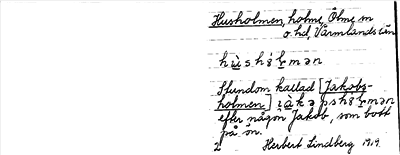 Husholmen, holme, Ölme sn
o. hd, Värmlands län
Stundom kallad [Jakobs-
holmen]
efter någon Jakob, som bott
på ön.
2 Herbert Lindberg 1919